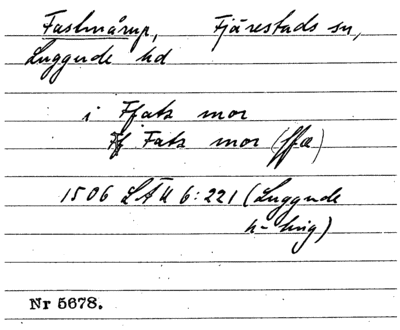 Fastmårup, Fjärestads sn,
Luggude hd
i Ffatz mor
Ff Fatz mor (ffæ)
1506 LÄU 6:221 (Luggude
h-ting)
Nr 5678.